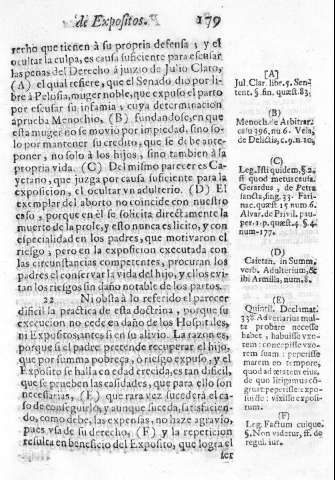 de Expositos. 179
recho que tienen à su propria defensa ; y el
ocultar la culpa, es causa suficiente para escusar
las penas del Derecho à juizio de Julio Claro,
(A) el qual refiere, que el Senado dio por li-
bre à Pelosia, muger noble, que expuso el parto
por escusar su infamia ; cuya determinacion
aprueba Menochio, (B) fundandose, en que
esta muger no se movio por impiedad, sino so-
lo por mantener su credito, que se debe ante-
poner, no solo à los hijos, sino tambien à la
propria vida. (C) Del mismo parecer es Ca-
yetano, que juzga por causa suficiente para la
exposicion, el ocultar vn adulterio. (D) El
exemplar del aborto no coincide con nuestro
caso, porque en èl se solicita directamente la
muerte de la prole, y esto nunca es licito, y con
especialidad en los padres, que motivaron el
riesgo ; pero en la exposicion executada con
las circunstancias competentes, procuran los
padres el conservar la vida del hijo, y ellos evi-
tan los riesgos sin daño notable de los partos.
22 Ni obsta à lo referido el parecer
dificil la practica de esta doctrina, porque su
execucion no cede en daño de los Hospitales,
ni Expositos, antes si en su alivio. La razon es,
porque si el padre pretende recuperar el hijo,
que por suma pobreza, ò riesgo expuso, y el
Exposito se halla en edad crecida, es tan dificil,
que se prueben las calidades, que para ello son
necessarias, (E) que rara vez sucederà el ca-
so de conseguirlo, y aunque suceda, satisfacien-
do, como debe, las expensas, no haze agravio,
pues vsa de su derecho, (F) y la repeticion
resulta en beneficio del Exposito, que logra el
ser
[A]
Jul. Clar. libr. 5. Sen-
tent. § fin. quæst. 83.
(B)
Menoch. de Arbitrar.
casu 396. nu. 6. Vela,
de Delictis, c. 9. n. 20.
(C)
Leg. Isti quidem, § 2.
ff. quod metus causa.
Gerardus, de Petra
sancta, sing. 33. Fari-
nac. quæst. 15 num 6.
Alvar. de Privil. pau-
per. 1. p. quæst 4. § 4.
num. 177.
(D)
Caietan. in Summ.
verb. Adulterium, &
ibi Armilla, num. 8.
(E)
Quintil. Declamat.
338. Adversarius mul-
ta probare necesse
habet ; habuisse vxo-
rem ; concepisse vxo-
rem suam ; peperisse
marem eo tempore,
quod ad ætatem eius,
de quo litigimus cõ-
gruat: peperisse : expo-
suisse : vixisse exposi-
tum.
(F)
Leg. Factum cuique.
§. Non videtur, ff. de
regul. iur.